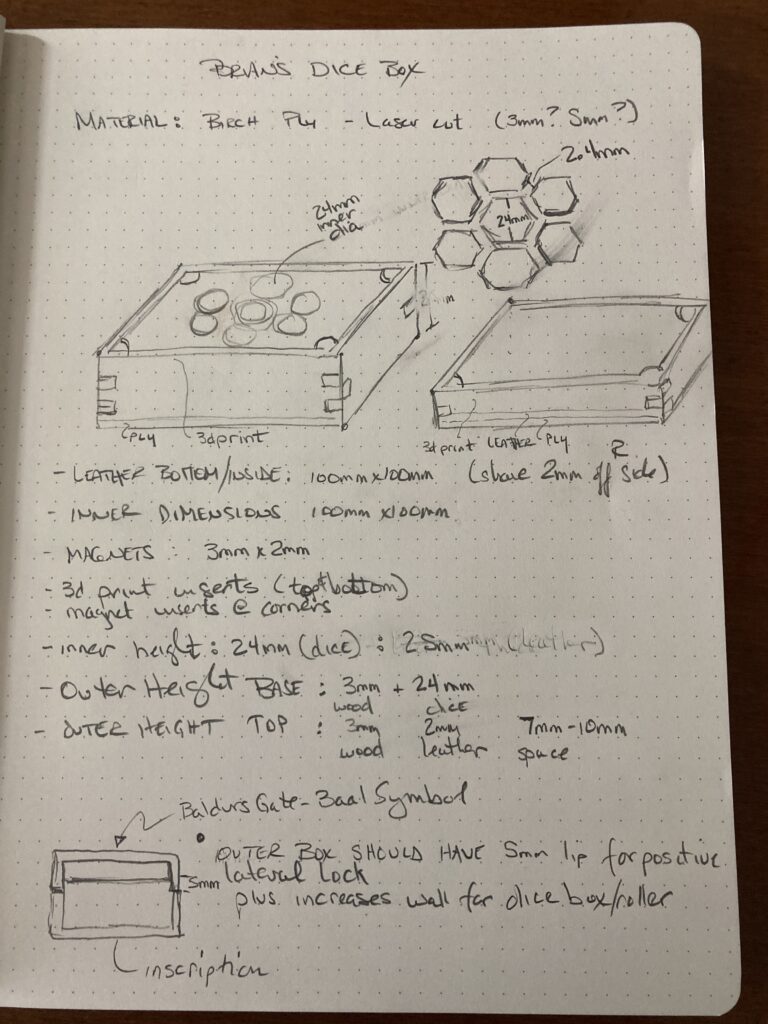 BRIAN'S DICE BOX
MATERIAL: BIRCH PLY - Laser cut (3mm? 5mm?)
2.4mm
24mm
inner
dia
24mm
PLY
3dprint
3dprint LEATHER PLY
- LEATHER BOTTEM/INSIDE: 100mm x 100mm (shave 2mm off R side)
- INNER DIMENSIONS 100mm x 100mm
- MAGNETS: 3mm x 2mm
- 3d print inserts (top+bottom)
- magnet inserts @ corners
- inner height: 24mm (dice): 25mm (leather)
- Outer Height BASE: 3mm + 24mm
wood dice
- OUTER HEIGHT TOP: 3mm 2mm 7mm-10mm
wood leather space
Baldurs Gate - Baal Symbol
• OUTER BOX SHOULD HAVE 5mm lip for positive
5mm lateral lock
plus increases wall for dice box/roller
inscription